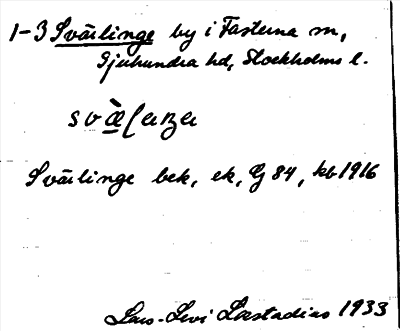 1-3 Svärlinge by i Fasterna sn,
Sjuhundra hd, Stockholms l.
Svärlinge bek, ek, G 84, kb 1916
Lars-Levi Læstadius 1933